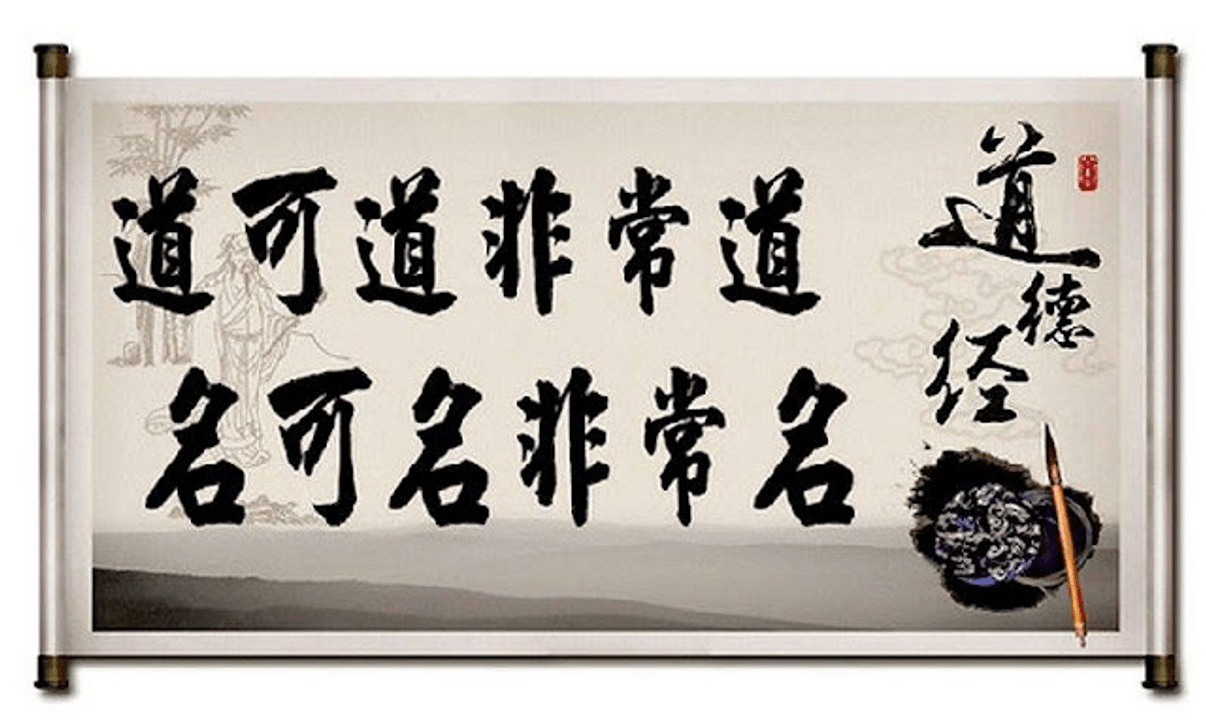 道可道非常道
名可名非常名
道德经